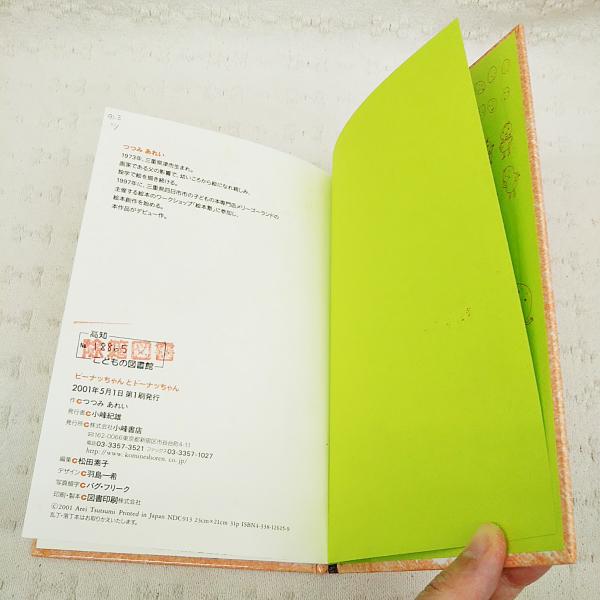 913
ツ
つつみ あれい
1973年、三重県津市生まれ。
画家である父の影響で、幼いころから絵になれ親しみ、
独学で絵を描き続ける。
1997年に、三重県四日市市の子どもの本専門店メリーゴーランドの
主催する絵本のワークショップ「絵本塾」に参加し、
絵本創作を始める。
本作品がデビュー作。
高知
№ 12865
除籍図書
こどもの図書館
ピーナッちゃんとトーナッちゃん
2001年5月1日 第1刷発行
作Cつつみ あれい
発行者C小峰紀雄
発行所C株式会社小峰書店
〒162-0066東京都新宿区市谷台町4-11
電話03-3357-3521 ファックス03-3357-1027
http://www.komineshoten.co.jp/
編集C松田素子
デザインC羽島一希
写真帽子Cバグ・フリーク
印刷・製本C図書印刷株式会社
©2001 Arei Tsutsumi Printed in Japan NDC913 23cm×21cm 31p ISBN4-338-12625-9
乱丁・落丁本はお取りかえいたします。